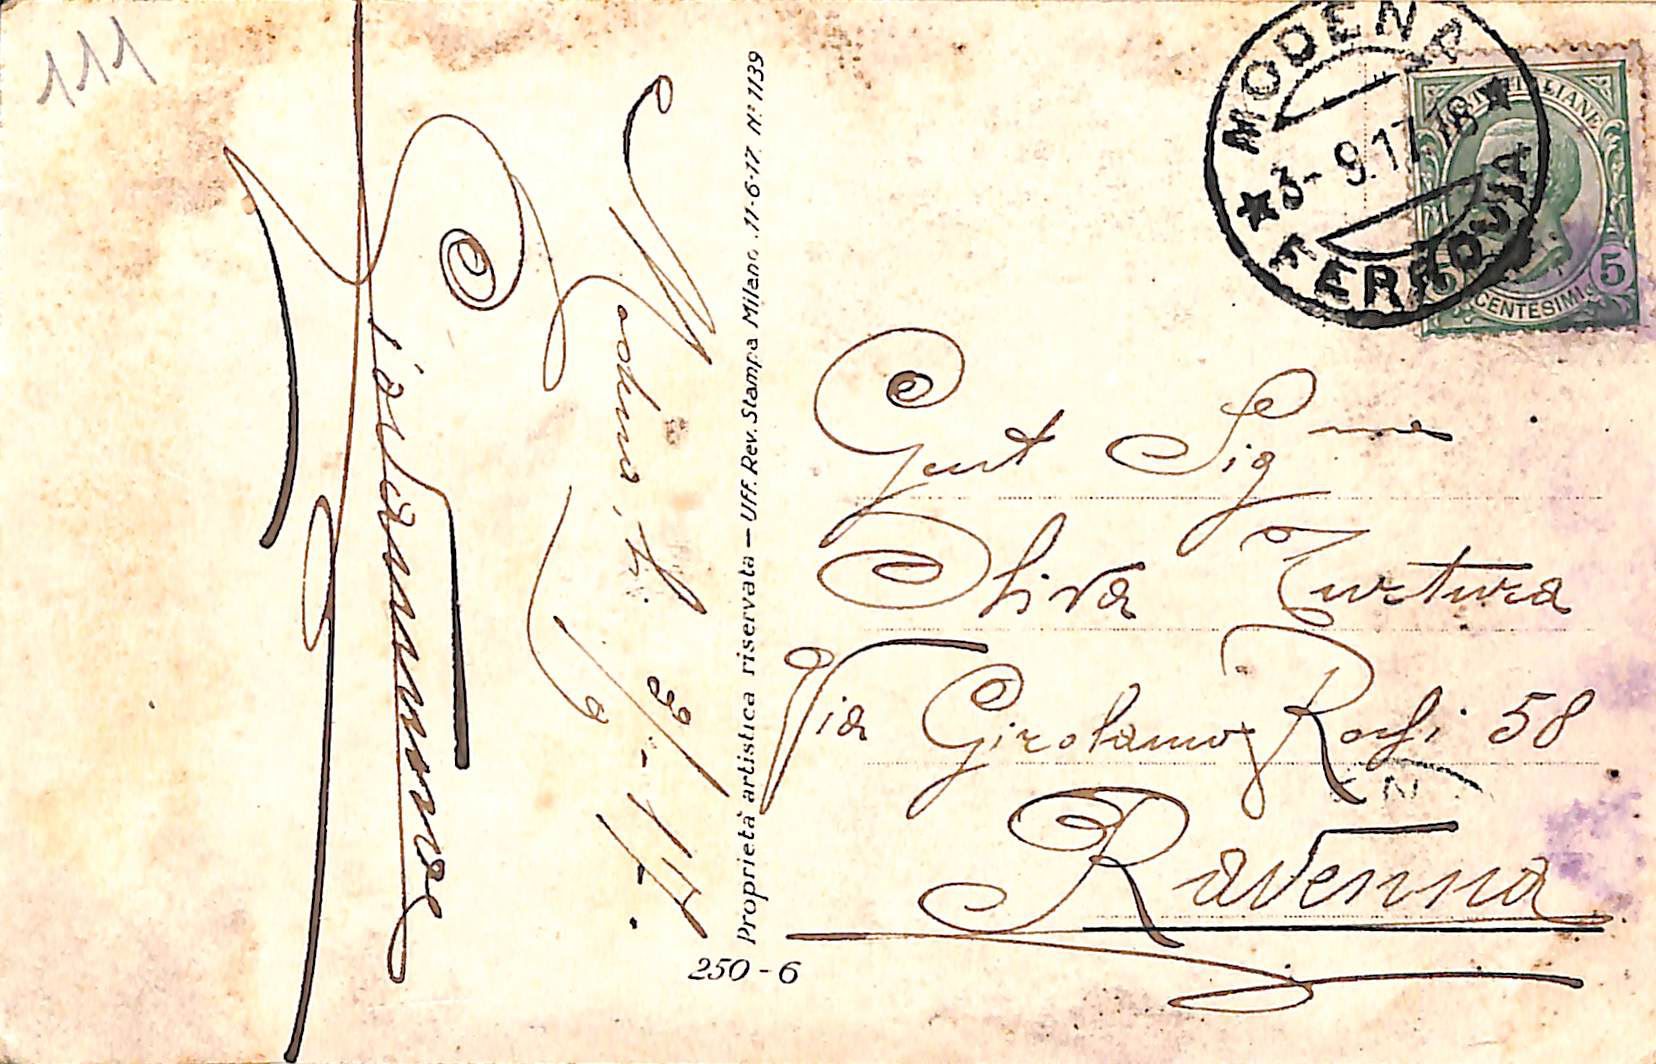 111
Modena, li
2/9-17.
Giovannone
Proprietà artistica riservata — Uff. Rev. Stampa Milano. 11-6-17. N.° 1139
250-6
MODENA
3-9.17.18
FERROVIA
POSTE ITALIANE
5 CENTESIMI 5
Gent Sigma
Oliva Turtura
Via Girolamo Rossi 58
Ravenna